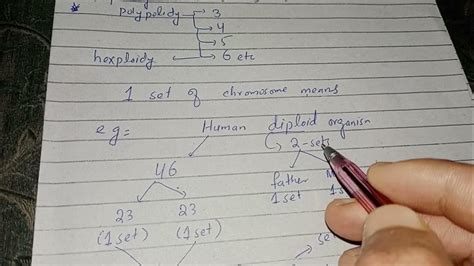 polypolidy → 3
→ 4
→ 5
hexploidy ← → 6 etc
1 set of chromosome means
eg:- Human diploid organism
2-sets
46
father M
1 set 1 s
23 23
(1 set) (1 set)
se